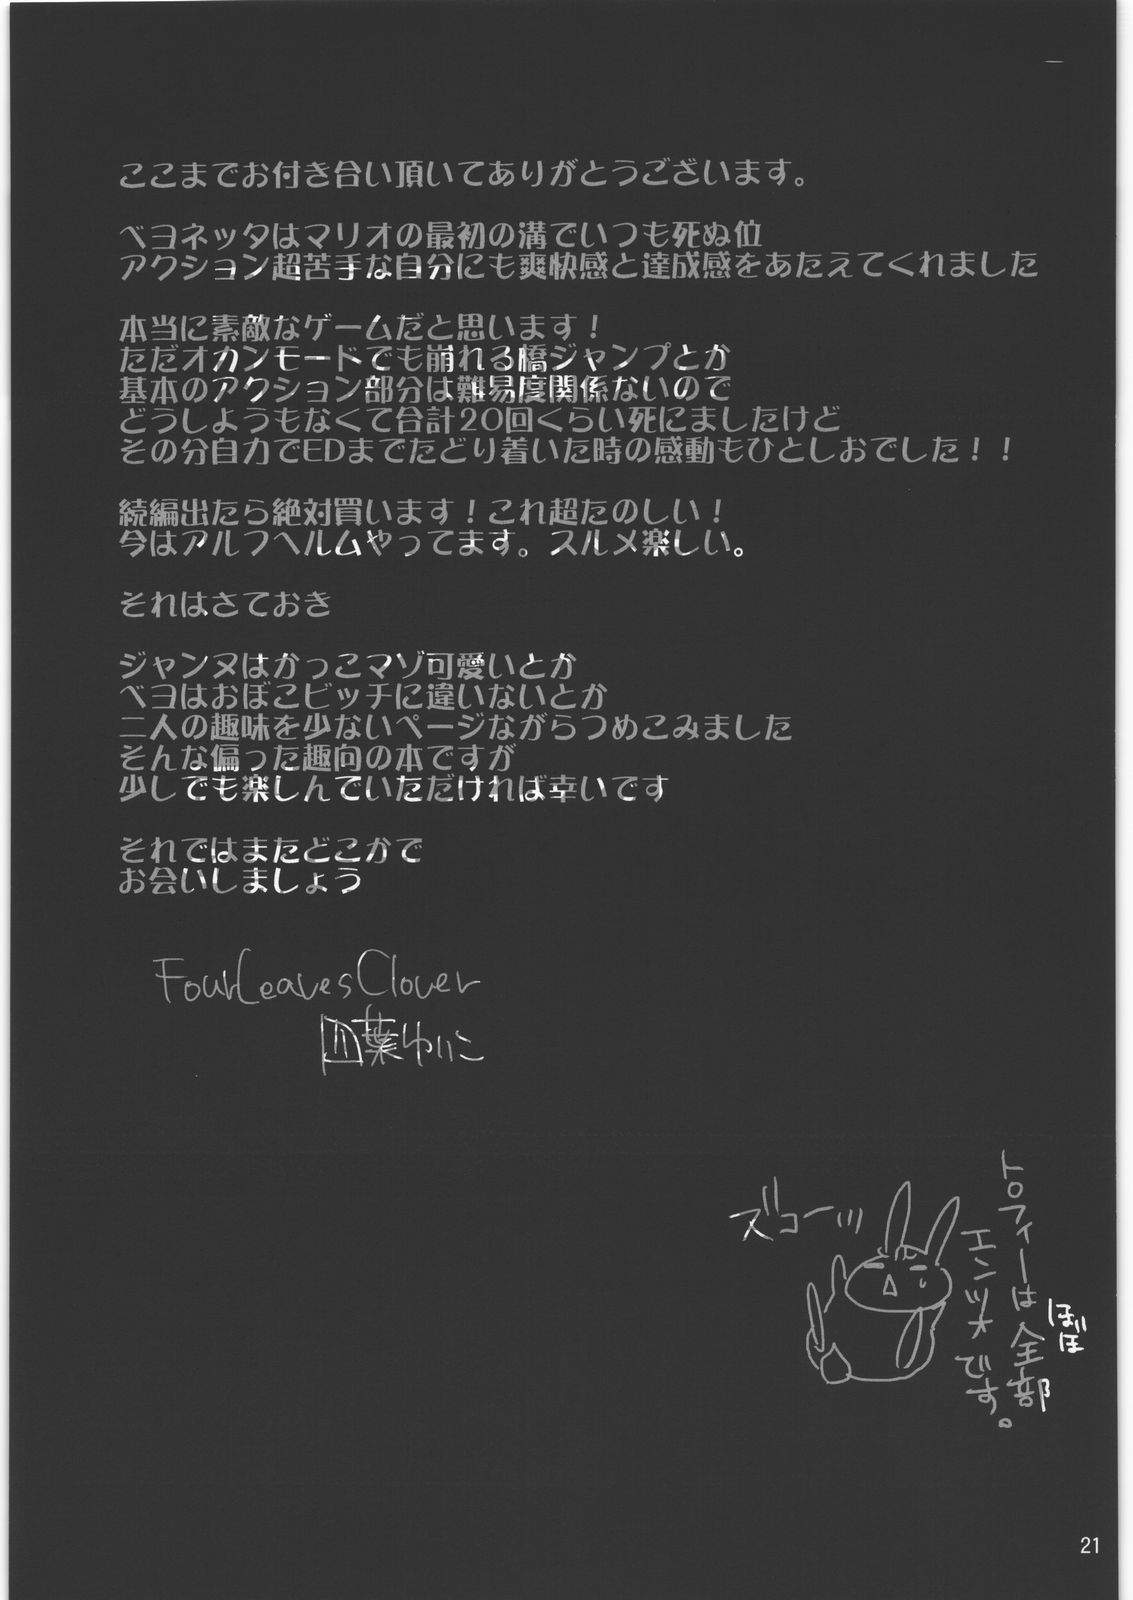 ここまでお付き合い頂いてありがとうございます。
ベヨネッタはマリオの最初の溝でいつも死ぬ位
アクション超苦手な自分にも爽快感と達成感をあたえてくれました
本当に素敵なゲームだと思います！
ただオカンモードでも崩れる橋ジャンプとか
基本のアクション部分は難易度関係ないので
どうしようもなくて合計20回くらい死にましたけど
その分自力でEDまでたどり着いた時の感動もひとしおでした！！
続編出たら絶対買います！これ超たのしい！
今はアルフヘルムやってます。スルメ楽しい。
それはさておき
ジャンヌはかっこマゾ可愛いとか
ベヨはおぼこビッチに違いないとか
二人の趣味を少ないページながらつめこみました
そんな偏った趣向の本ですが
少しでも楽しんでいただければ幸いです
それではまたどこかで
お会いしましょう
FourLeavesClover
四葉ゆいこ
トロフィーは全部
ほぼ
エンツォです。
ズコーッ
21